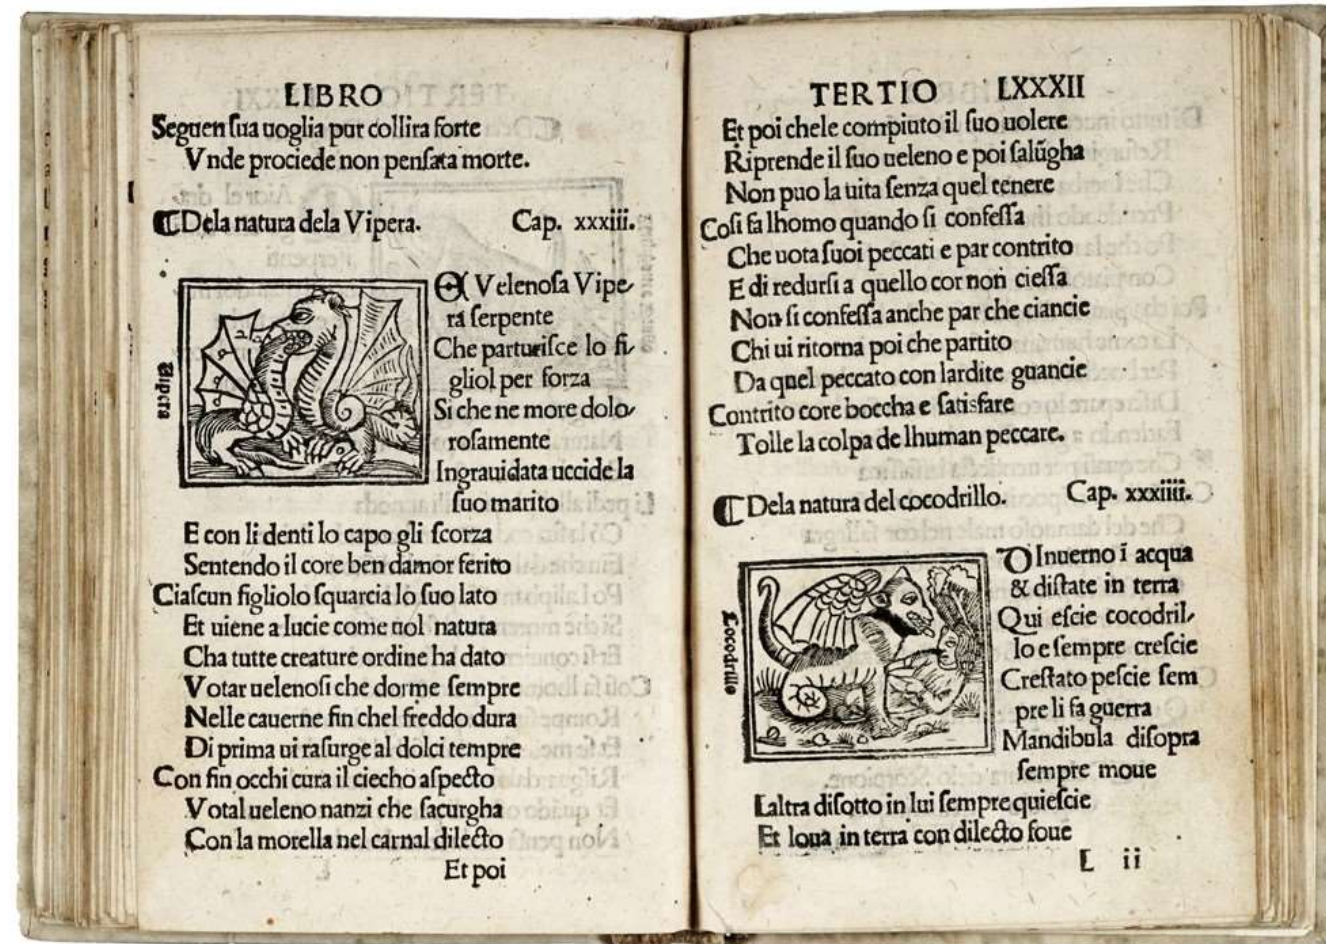 LIBRO
Seguen sua uoglia pur collira forte
Vnde prociede non pensata morte.
Dela natura dela Vipera. Cap. xxxiii.
Vipera
Velenosa Vipe-
ra serpente
Che parturisce lo fi-
gliol per forza
Si che ne more dolo-
rosamente
Ingrauidata uccide la
suo marito
E con li denti lo capo gli scorza
Sentendo il core ben damor ferito
Ciascun figliolo squarcia lo suo lato
Et uiene a lucie come uol natura
Cha tutte creature ordine ha dato
Votar uelenosi che dorme sempre
Nelle cauerne fin chel freddo dura
Di prima ui rasurge al dolci tempre
Con fin occhi cura il ciecho aspecto
Votal ueleno nanzi che sacurgha
Con la morella nel carnal dilecto
Et poi
TERTIO LXXXII
Et poi chele compiuto il suo uolere
Riprende il suo ueleno e poi salūgha
Non puo la uita senza quel tenere
Cosi fa lhomo quando si confessa
Che uota suoi peccati e par contrito
E di redursi a quello cor non ciessa
Non si confessa anche par che ciancie
Chi ui ritorna poi che partito
Da quel peccato con lardite guancie
Contrito core boccha e satisfare
Tolle la colpa de lhuman peccare.
Dela natura del cocodrillo. Cap. xxxiiii.
Cocodrillo
DInuerno ī acqua
& distate in terra
Qui escie cocodril-
lo e sempre crescie
Crestato pescie sem
pre li fa guerra
Mandibula disopra
sempre moue
Laltra disotto in lui sempre quiescie
Et loua in terra con dilecto foue
L ii